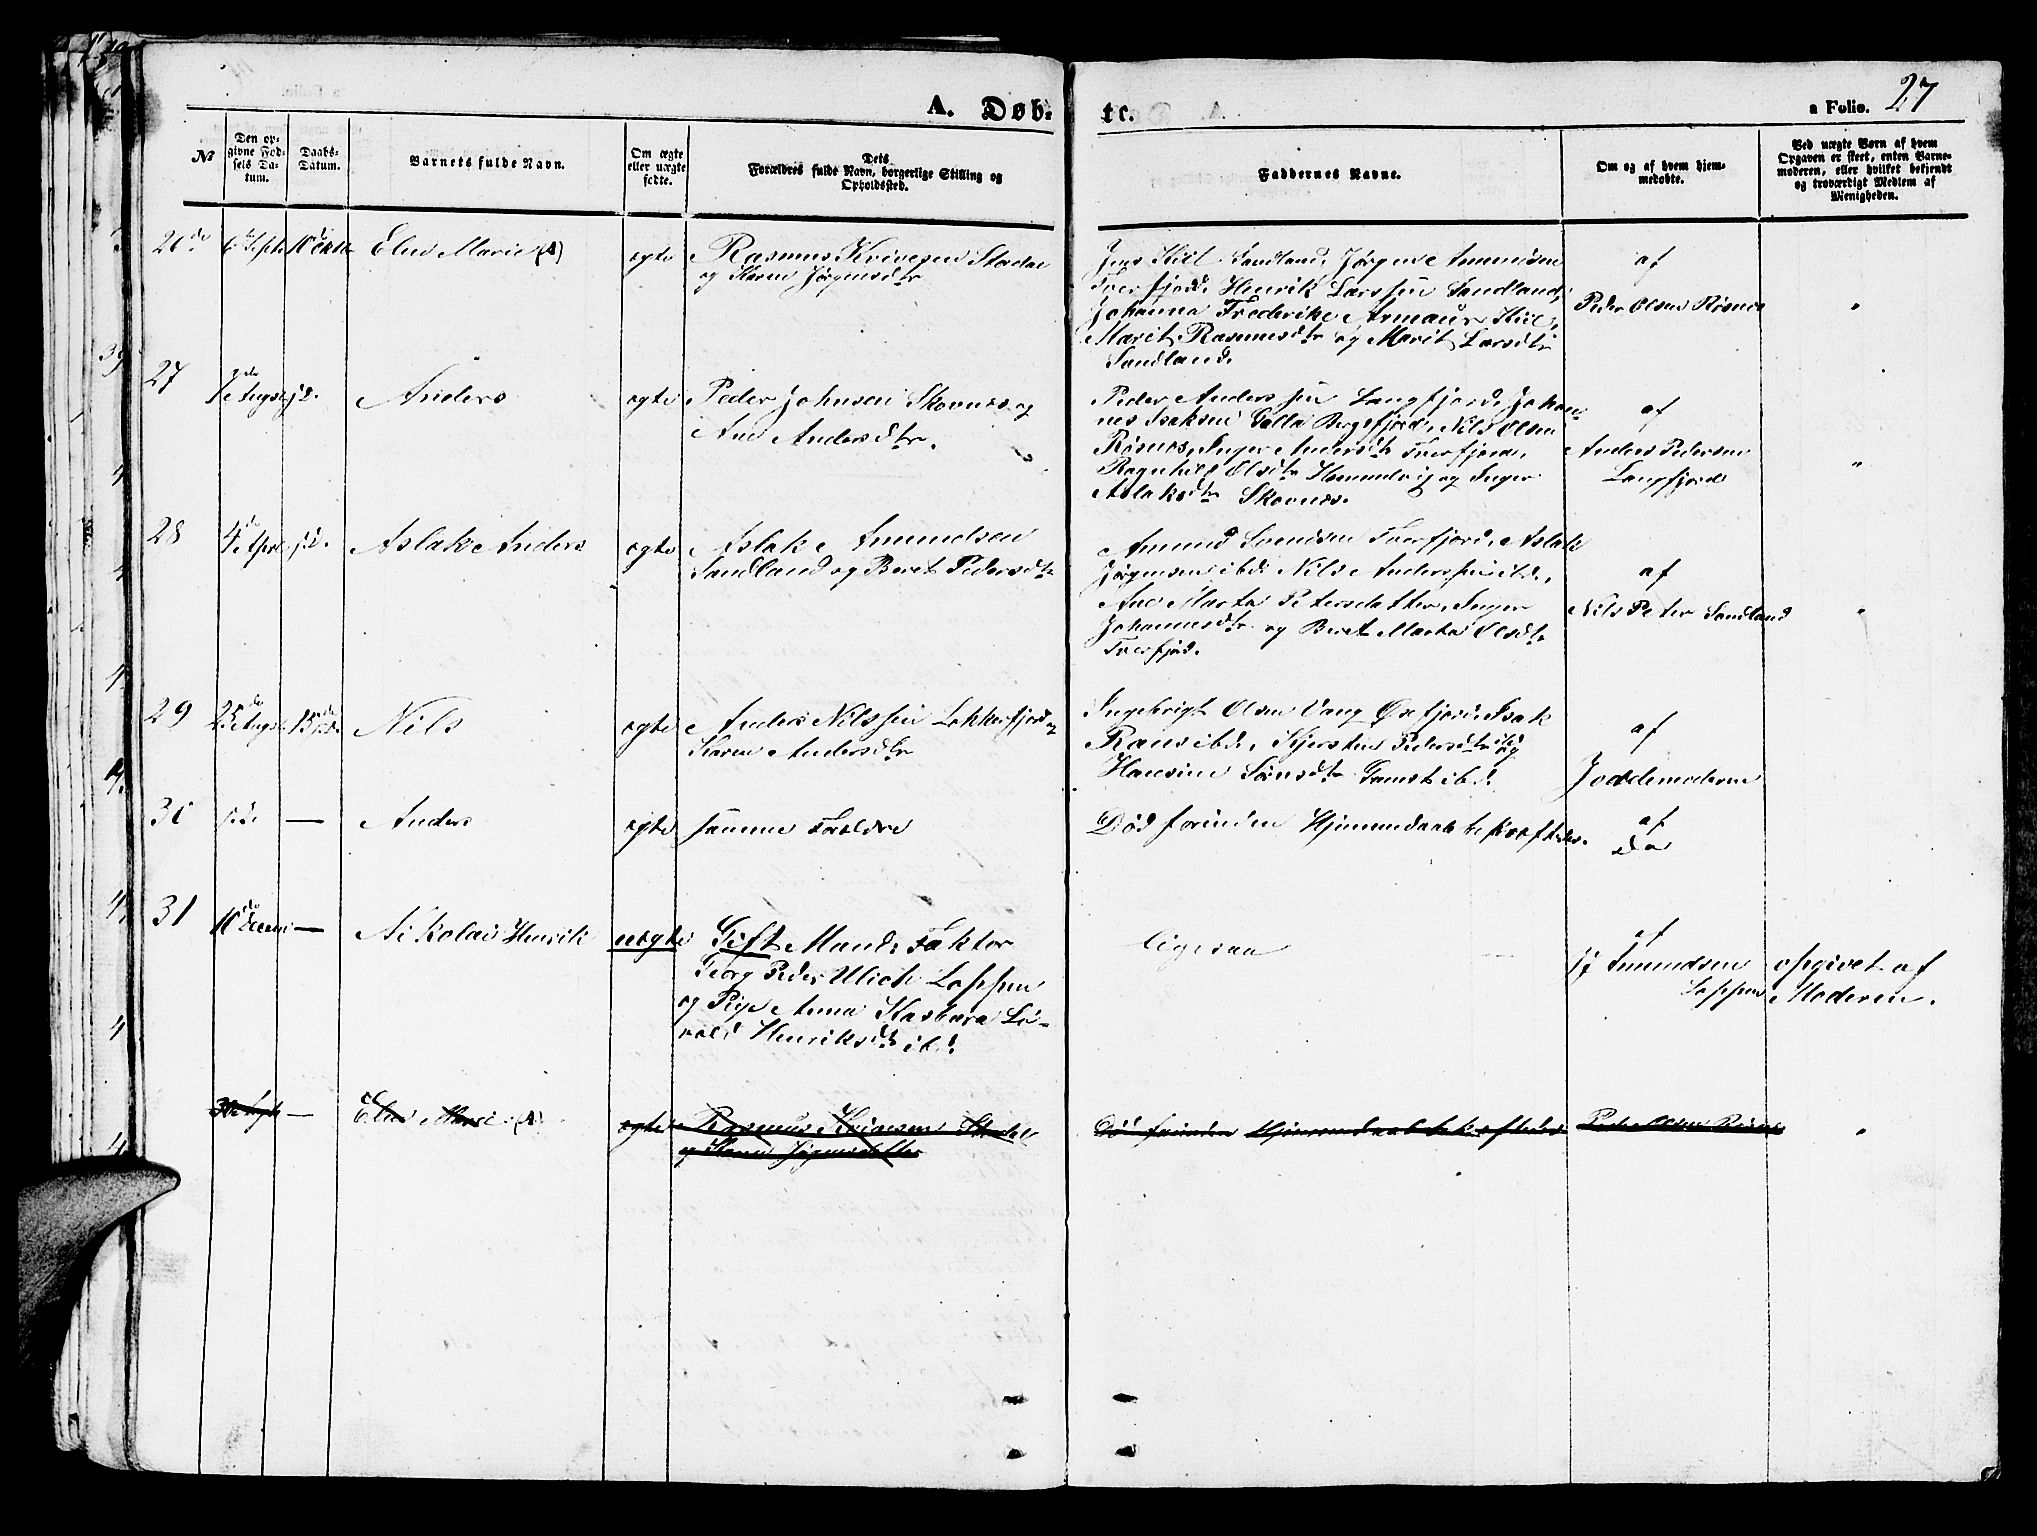 A. Døb- te.
a Folio. 27
No
Den op-
givne Fød-
sels Da-
tum.
Daabs-
Datum.
Barnets fulde Navn.
Om ægte
eller uægte
fødte.
Dets
Forældres fulde Navn, borgerlige Stilling og
Opholdssted.
Faddernes Navne.
Om og af hvem hjem-
medøbte.
Ved uægte Børn af hvem
Opgaven er skeet, enten Barne-
moderen, eller hvilket bekjendt
og troværdigt Medlem af
Menigheden.
26 6 Septe 10 Okto Elen Marie (S) ægte Rasmus
og Karen Jørgensdtr
Jens Kiil Sandland, Jørgen Amundsen
Tverfjord, Henrik Larssen Sandland,
Johanna Frederikke Armauer Kiil,
Marit Rasmusdtr og Marit Larsdtr
Sandland.
af
Peder Olsen Røsnes
"
27 7de Augst jd. Anders ægte Peder Johnsen Skovnes og
Ane Andersdtr.
Peder Anderssen Langfjord, Johan-
nes Isaksen Galla Bergsfjord, Nils Olsen
Røsnes, Inger Andersdtr Tverfjord,
Ragnhild Olsdtr Hammelvig og Inger
Aslaksdtr Skovnes.
af
Anders Pedersen
Langfjord
"
28 4de April jd. Aslak Anders ægte Aslak Amundsen
Sandland og Beret Pedersdtr
Amund Svendsen Tverfjord, Aslak
Jørgensen ibd. Nils Anderssen ibd.,
Ane Marta Petersdatter, Inger
Johannesdtr og Beret Marta Olsdtr
Tverfjord.
af
Nils Peter Sandland
"
29 25de Augst 15de Nils ægte Anders Nilssen Lokkerfjord og
Karen Andersdtr
Ingebrigt Olsen Vang Øxfjord, Isak
Rans ibd., Kjersten Pedersdtr ibd og
Hansine Sønsdtr Gamst ibd.
af
Jordemoderen
30 jd. — Anders ægte samme Forældre
Død forinden Hjemmedaab bekræftedes.
af
Do
31 10de Decem — Nikolai Henrik uægte Gift Mand, Faktor
Georg Peder Ulich Loppen
og Pige Anna Kasbara Li-
vold Henriksdtr ibd.
ligesaa
af
Amundsen
Loppen
opgivet af
Moderen.
— Elen Marie (S) ægte Rasmus
og Karen Jørgensdatter
Død forinden Hjemmedaab bekræftedes Peder Olsen Røsnes
"